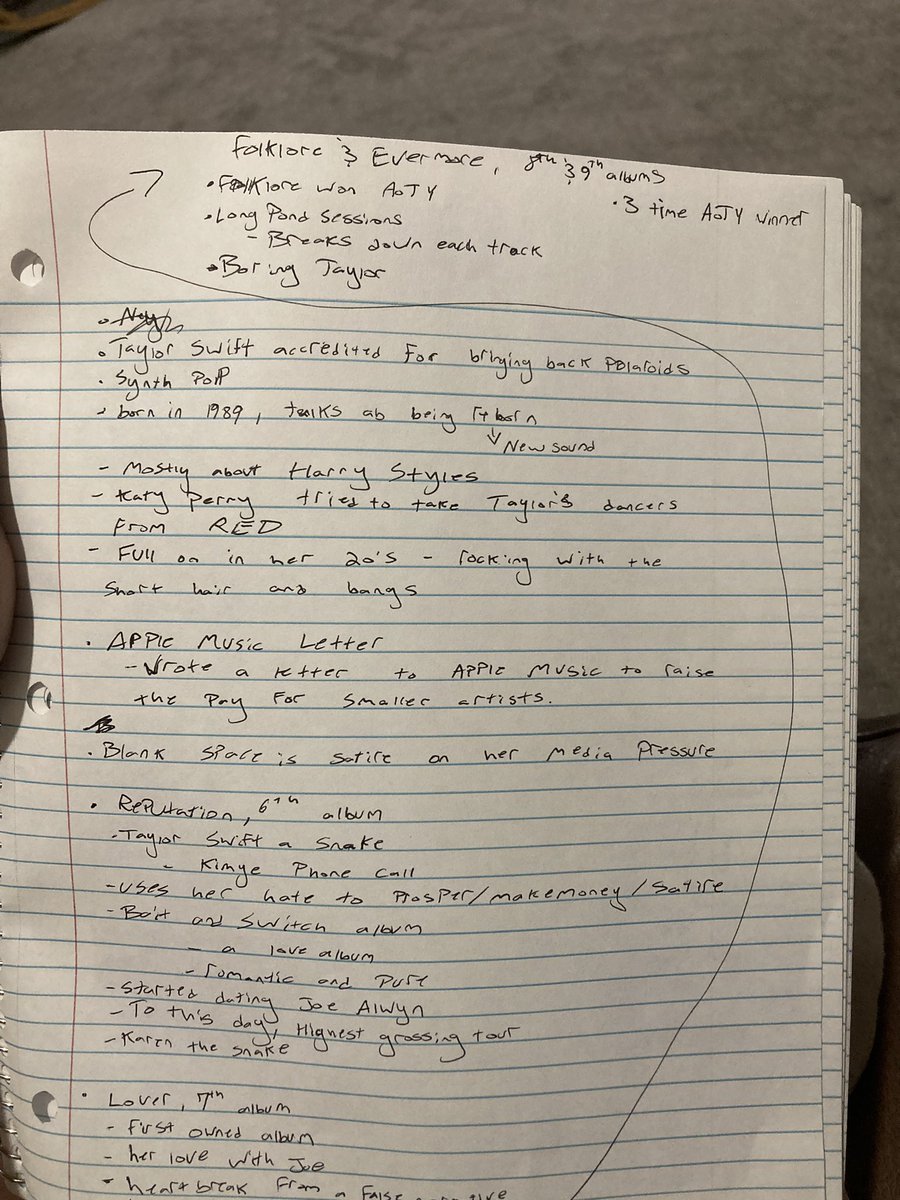 Folklore & Evermore, 8th & 9th albums
• Folklore won AOTY
• 3 time AOTY winner
• Long Pond Sessions
- Breaks down each track
• Boring Taylor
• Taylor Swift accredited for bringing back Polaroids
• Synth Pop
• born in 1989, talks ab being reborn
↓ New sound
- Mostly about Harry Styles
- Katy Perry tried to take Taylor's dancers
from RED
- Full on in her 20's - rocking with the
short hair and bangs
• Apple Music Letter
- Wrote a letter to Apple Music to raise
the pay for smaller artists.
• Blank Space is satire on her media pressure
• Reputation, 6th album
• Taylor Swift a snake
- Kimye Phone call
- uses her hate to prosper/make money/satire
- Bait and switch album
- a love album
- romantic and pure
- started dating Joe Alwyn
- To this day, Highest grossing tour
- Karen the snake
• Lover, 7th album
- first owned album
- her love with Joe
- heartbreak from a false